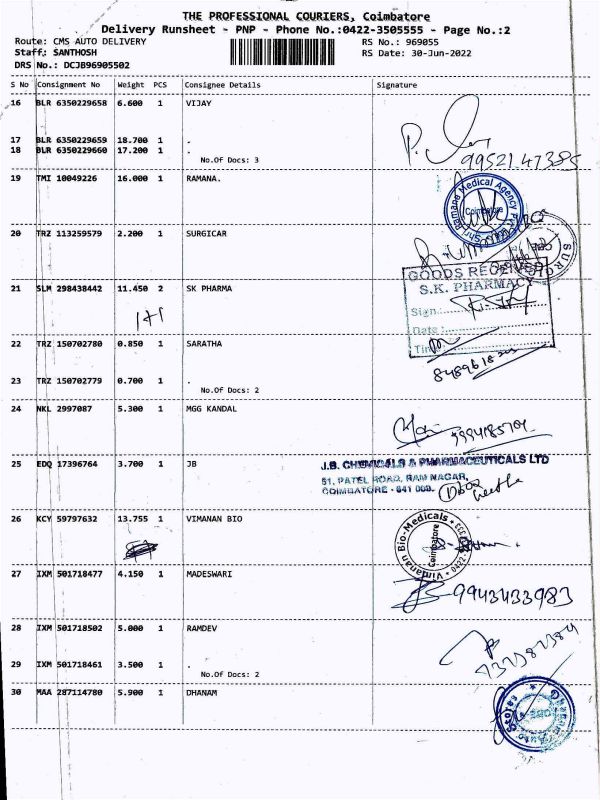 THE PROFESSIONAL COURIERS, Coimbatore
Delivery Runsheet - PNP - Phone No.:0422-3505555 - Page No.:2
Route: CMS AUTO DELIVERY
RS No.: 969055
Staff: SANTHOSH
RS Date: 30-Jun-2022
DRS No.: DCJB96905502
S No Consignment No Weight PCS Consignee Details Signature
16 BLR 6350229658 6.600 1 VIJAY
17 BLR 6350229659 18.700 1 .
18 BLR 6350229660 17.200 1 .
No.Of Docs: 3
9952147385
19 TMI 10049226 16.000 1 RAMANA.
Shri Ramana Medical Agency
Coimbatore
20 TRZ 113259579 2.200 1 SURGICAR
GOODS RECEIVED
21 SLM 298438442 11.450 2 SK PHARMA
S.K. PHARMACY
Sign
1+1
Date :
22 TRZ 150702780 0.850 1 SARATHA
Time
23 TRZ 150702779 0.700 1 .
No.Of Docs: 2
24 NKL 2997087 5.300 1 MGG KANDAL
25 EDQ 17396764 3.700 1 JB
J.B. CHEMICALS & PHARMACEUTICALS LTD
51, PATEL ROAD, RAM NAGAR,
COIMBATORE - 641 009.
26 KCY 59797632 13.755 1 VIMANAN BIO
Vimanan Bio-Medicals
Coimbatore
27 IXM 501718477 4.150 1 MADESWARI
9943433983
28 IXM 501718502 5.000 1 RAMDEV
29 IXM 501718461 3.500 1 .
No.Of Docs: 2
30 MAA 287114780 5.900 1 DHANAM